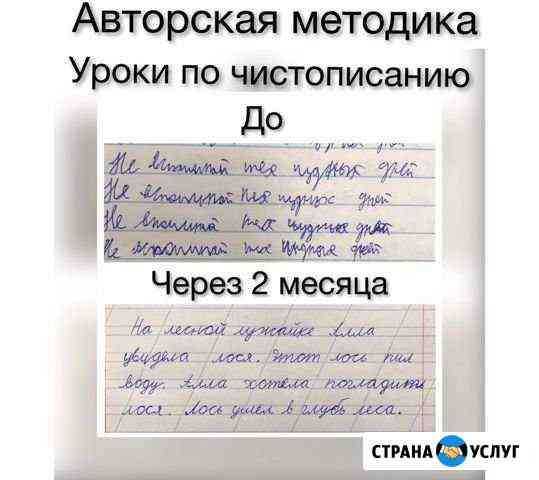 Авторская методика
Уроки по чистописанию
До
Не вспоминай тех чудных дней
Не вспоминай тех чудных дней
Не вспоминай тех чудных дней
Не вспоминай тех чудных дней
Через 2 месяца
На лесной лужайке Алла
увидела лося. Этот лось пил
воду. Алла хотела погладить
лося. Лось ушел в глубь леса.
СТРАНА УСЛУГ